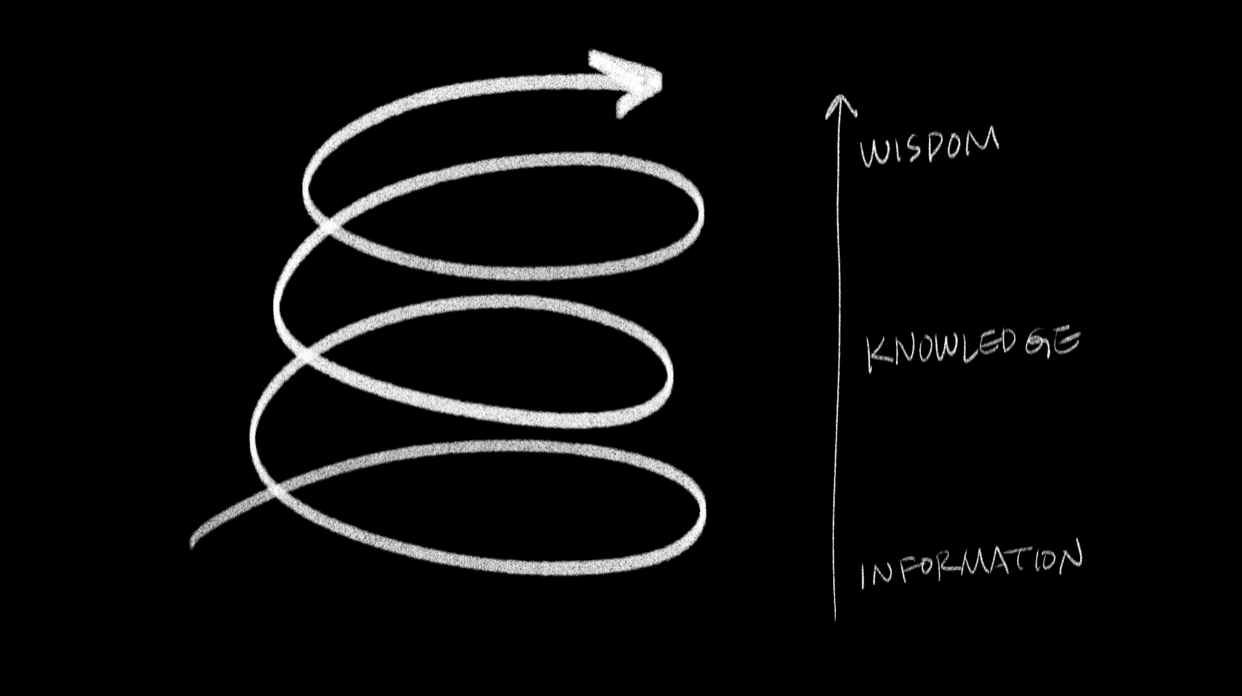 WISDOM
KNOWLEDGE
INFORMATION